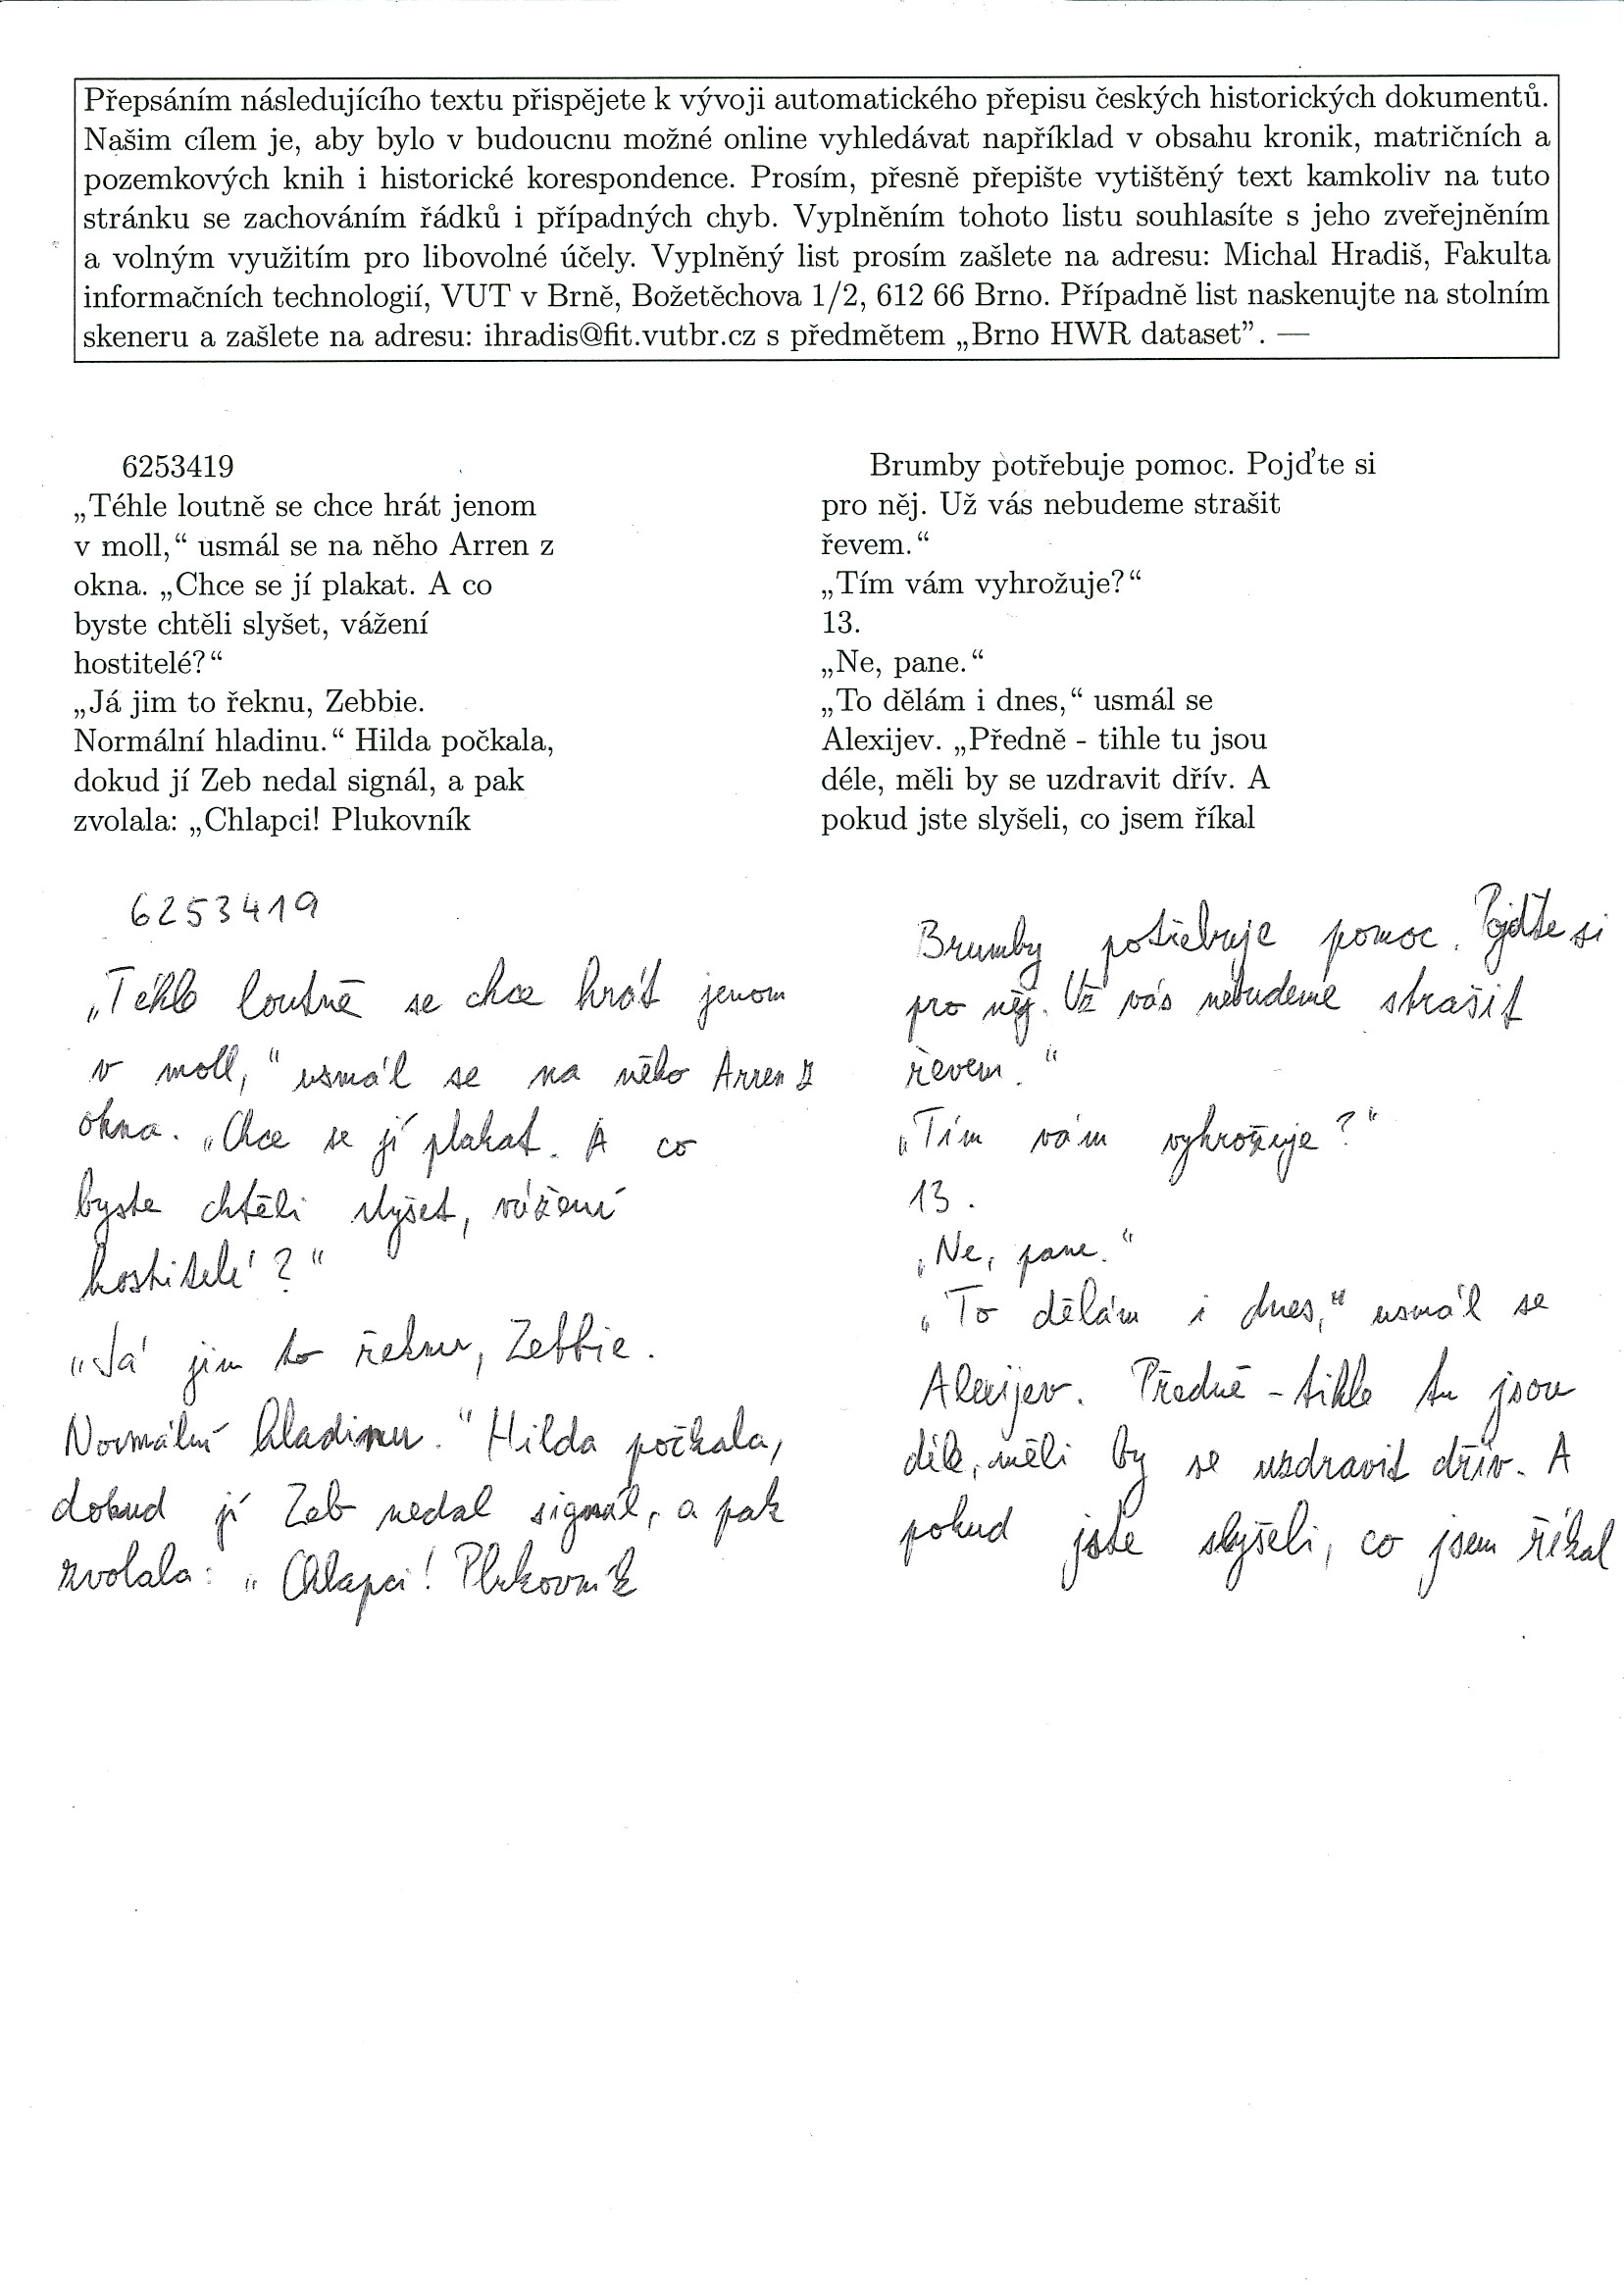 Přepsáním následujícího textu přispějete k vývoji automatického přepisu českých historických dokumentů.
Našim cílem je, aby bylo v budoucnu možné online vyhledávat například v obsahu kronik, matričních a
pozemkových knih i historické korespondence. Prosím, přesně přepište vytištěný text kamkoliv na tuto
stránku se zachováním řádků i případných chyb. Vyplněním tohoto listu souhlasíte s jeho zveřejněním
a volným využitím pro libovolné účely. Vyplněný list prosím zašlete na adresu: Michal Hradiš, Fakulta
informačních technologií, VUT v Brně, Božetěchova 1/2, 612 66 Brno. Případně list naskenujte na stolním
skeneru a zašlete na adresu: ihradis@fit.vutbr.cz s předmětem „Brno HWR dataset”. —
6253419
„Téhle loutně se chce hrát jenom
v moll,“ usmál se na něho Arren z
okna. „Chce se jí plakat. A co
byste chtěli slyšet, vážení
hostitelé?“
„Já jim to řeknu, Zebbie.
Normální hladinu.“ Hilda počkala,
dokud jí Zeb nedal signál, a pak
zvolala: „Chlapci! Plukovník
Brumby potřebuje pomoc. Pojďte si
pro něj. Už vás nebudeme strašit
řevem.“
„Tím vám vyhrožuje?“
13.
„Ne, pane.“
„To dělám i dnes,“ usmál se
Alexijev. „Předně - tihle tu jsou
déle, měli by se uzdravit dřív. A
pokud jste slyšeli, co jsem říkal
6253419
„Téhle loutně se chce hrát jenom
v moll,“ usmál se na něho Arren z
okna. „Chce se jí plakat. A co
byste chtěli slyšet, vážení
hostitelé?“
„Já jim to řeknu, Zebbie.
Normální hladinu.“ Hilda počkala,
dokud jí Zeb nedal signál, a pak
zvolala: „Chlapci! Plukovník
Brumby potřebuje pomoc. Pojďte si
pro něj. Už vás nebudeme strašit
řevem.“
„Tím vám vyhrožuje?“
13.
„Ne, pane.“
„To dělám i dnes,“ usmál se
Alexijev. Předně - tihle tu jsou
déle, měli by se uzdravit dřív. A
pokud jste slyšeli, co jsem říkal